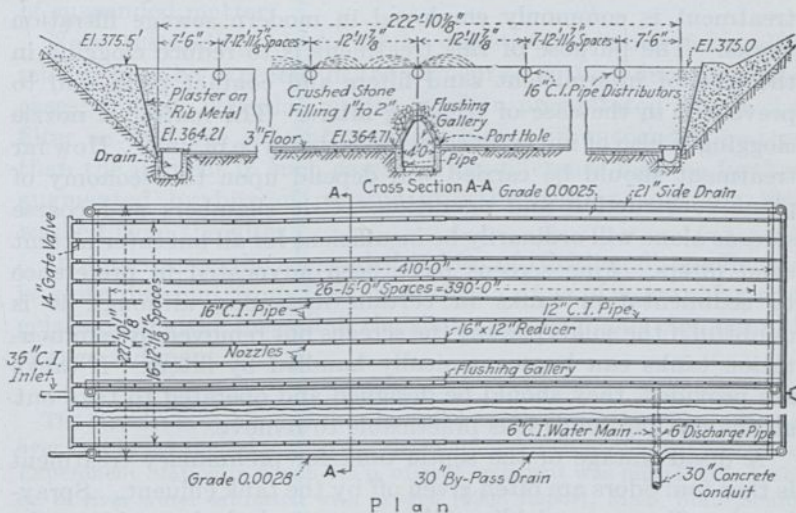 222'-10⅛"
El.375.5' 7'-6" 7-12'-11⅞" Spaces 12'-11⅞" 12'-11⅞" 7-12'-11⅞" Spaces 7'-6" El.375.0
Plaster on Rib Metal
Crushed Stone Filling 1" to 2"
Flushing Gallery
16" C.I. Pipe Distributors
El.364.21
3" Floor
El.364.71
Port Hole
Drain
4'0"
Pipe
Cross Section A-A
A
Grade 0.0025
21" Side Drain
14" Gate Valve
410'-0"
26-15'0" Spaces = 390'-0"
222'-10⅛"
16-12'-11⅞" Spaces
16" C.I. Pipe
12" C.I. Pipe
16" x 12" Reducer
Nozzles
36" C.I. Inlet
Flushing Gallery
6" C.I. Water Main
6" Discharge Pipe
Grade 0.0028
A
30" By-Pass Drain
30" Concrete Conduit
Plan